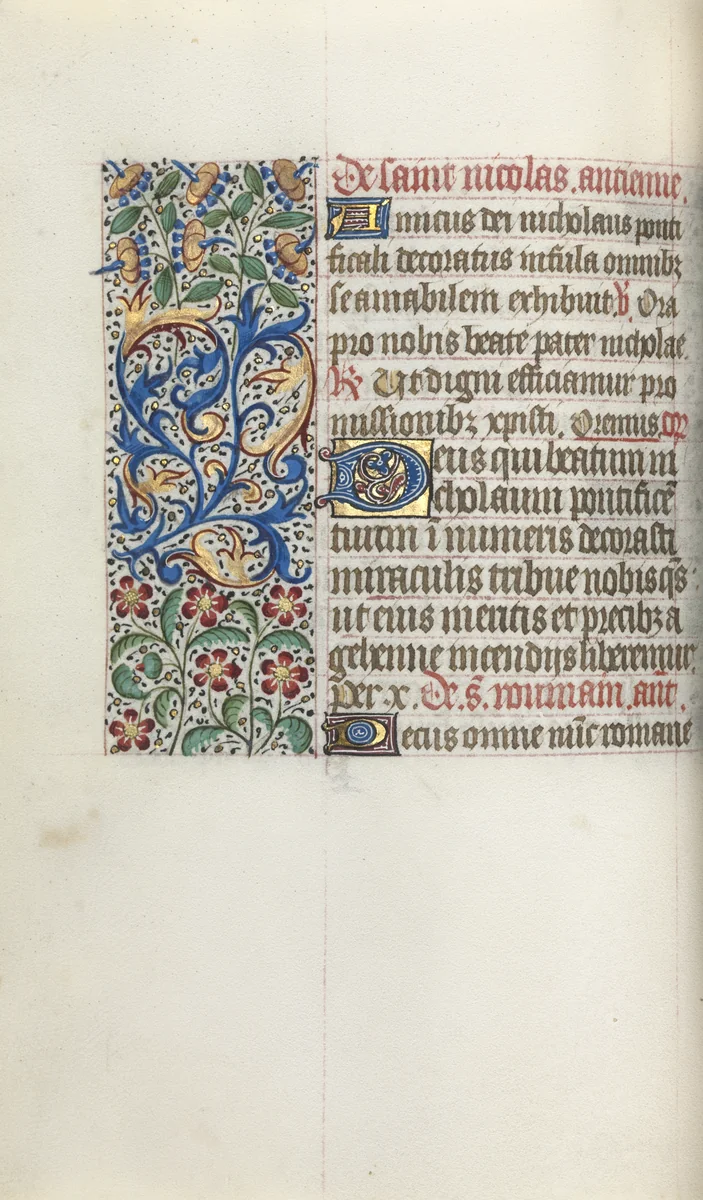 De saint nicolas. antienne.
Amicus dei nicholaus ponti
ficali decoratus infula omnibꝫ
se amabilem exhibuit. ℣ Ora
pro nobis beate pater nicholae.
℟ Ut digni efficiamur pro
missionibꝫ xpisti. Oremus. or̄
Deus qui beatum ni
cholaum pontificē
tuum īnumeris decorasti
miraculis tribue nobis qs̄
ut eius meritis et precibꝫ a
gehenne incendijs liberemur.
Per .x. De .s̄. roumain. ant.
Decus omne nūc romane